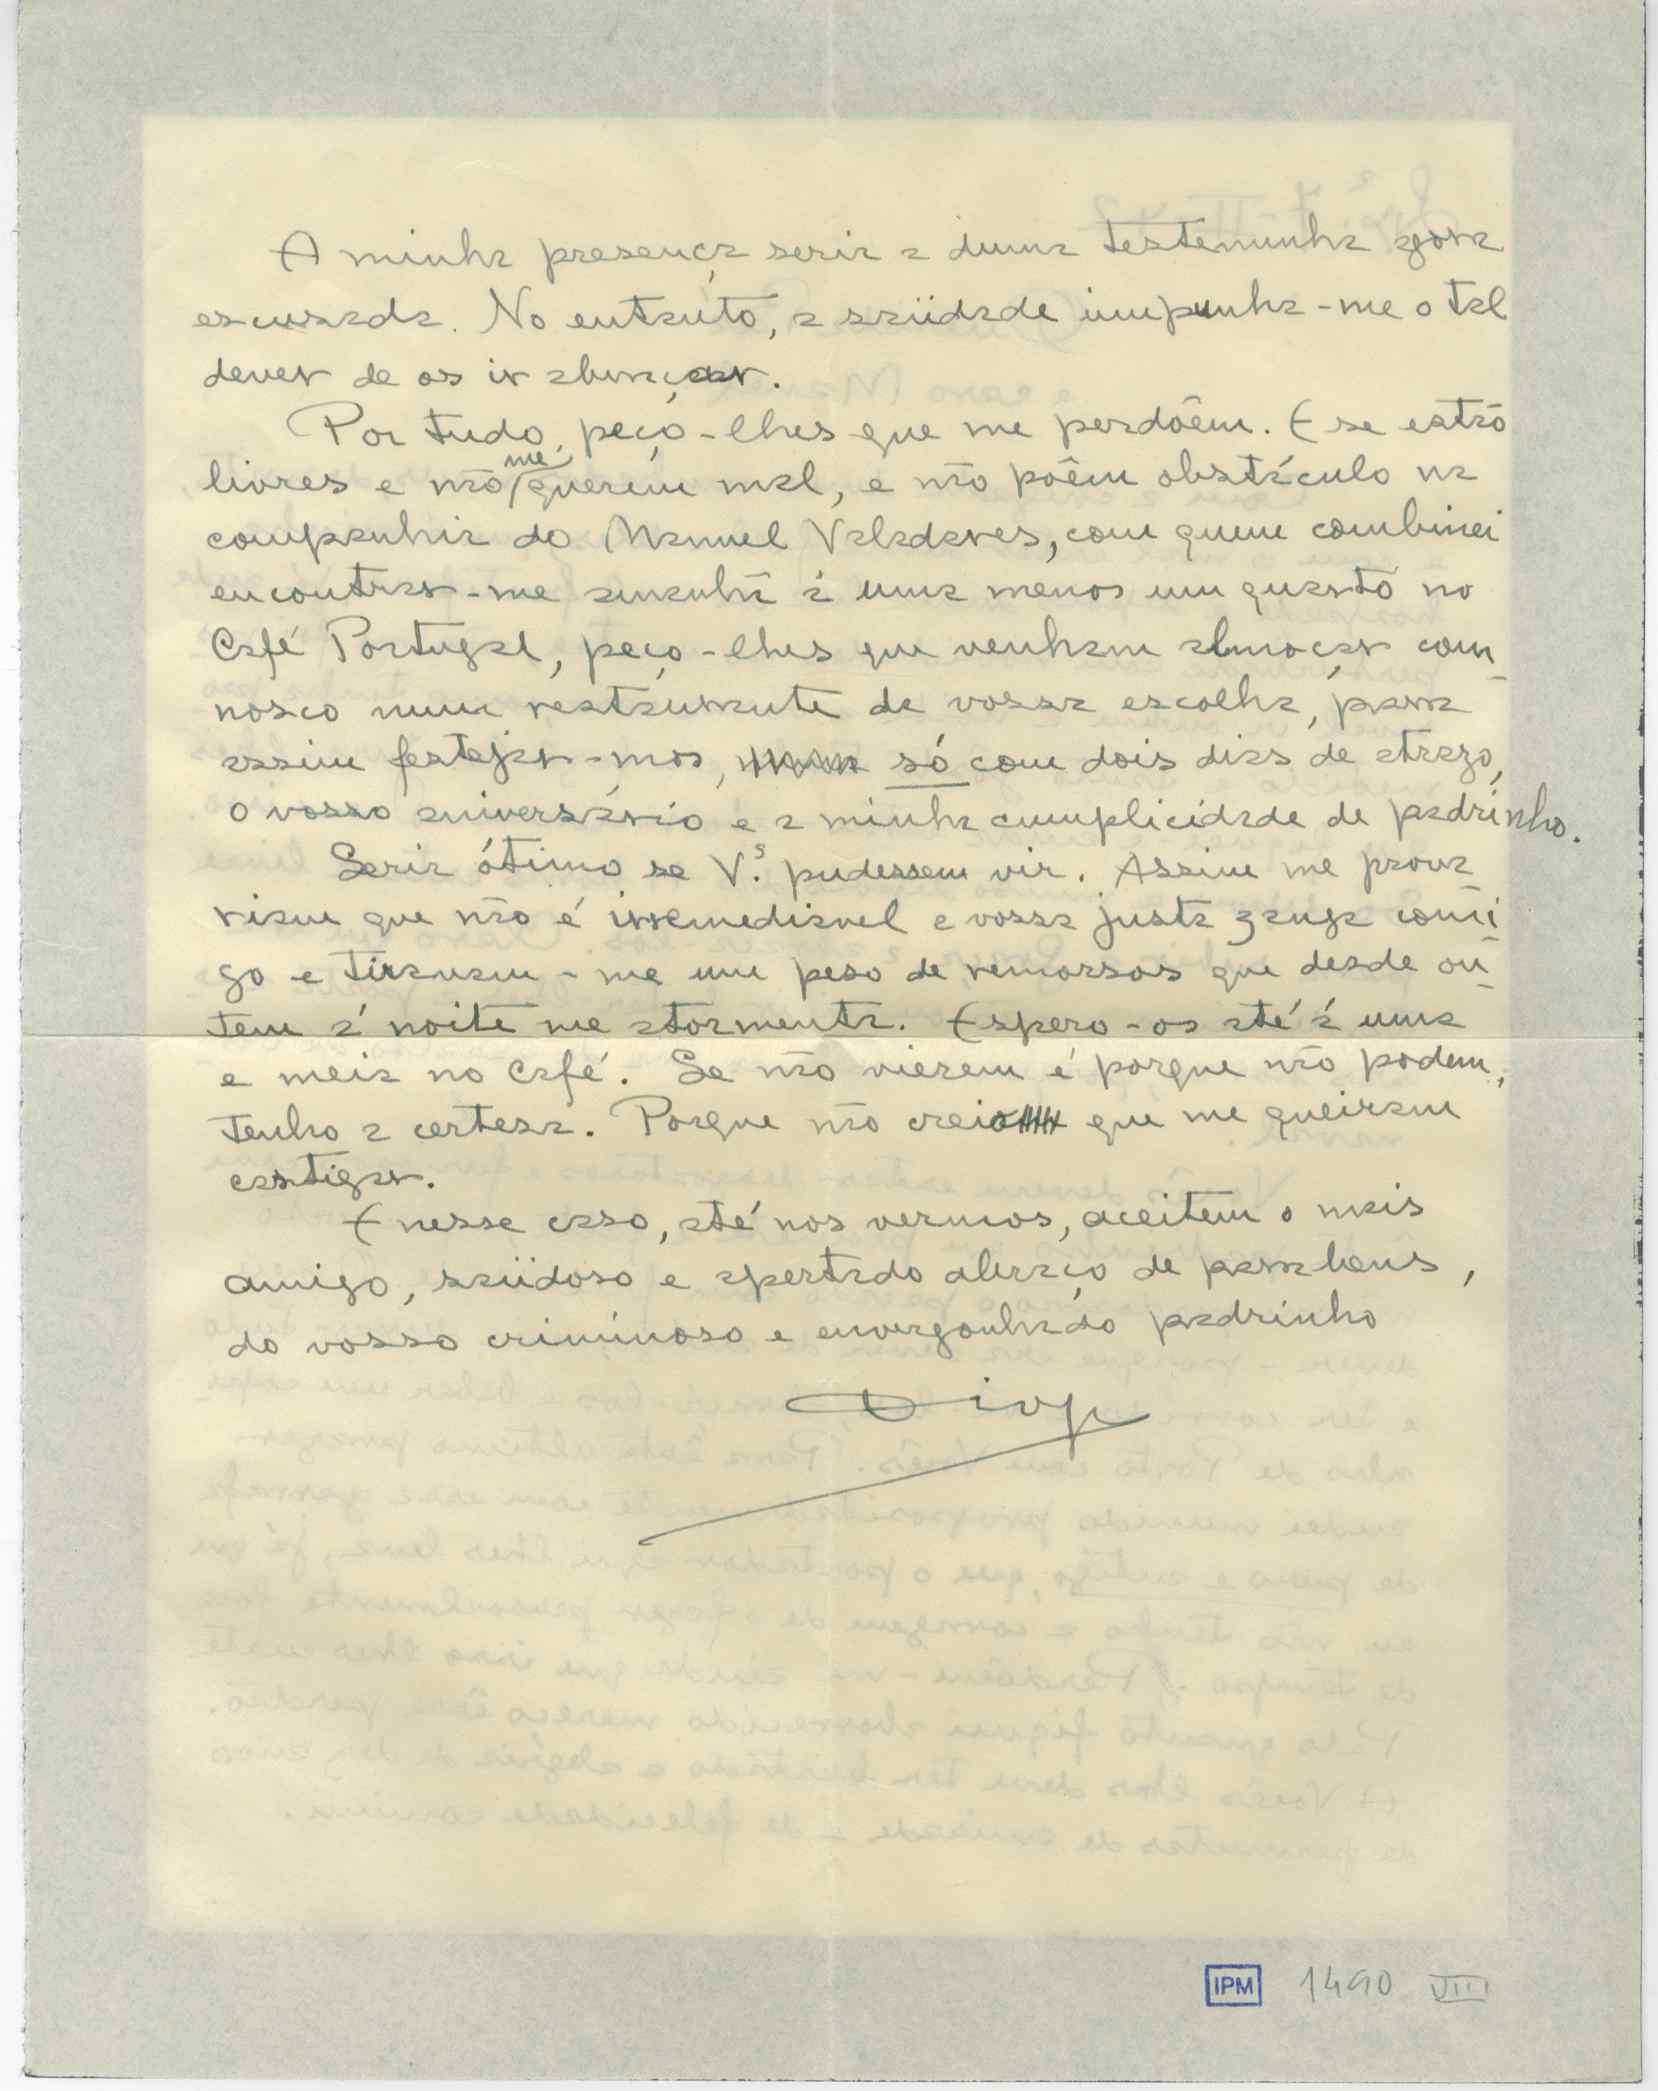 A minha presença seria a duma testemunha agora
escusada. No entanto, a saüdade impunha-me o tal
dever de os ir abraçar.
Por tudo, peço-lhes que me perdôem. E se estão
livres e não me querem mal, e não pôem obstáculo na
companhia do Manuel Valadares, com quem combinei
encontrar-me amanhã á uma menos um quarto no
Café Portugal, peço-lhes que venham almoçar com-
nosco num restaurante de vossa escolha, para
assim festejar-mos, só com dois dias de atrazo,
o vosso aniversário e a minha cumplicidade de padrinho.
Seria ótimo se V.s pudessem vir. Assim me prova
riam que não é irremediavel a vossa justa zanga comi
go e tiravam-me um peso de remorsos que desde on-
tem á noite me atormenta. Espero-os até á uma
e meia no Café. Se não vierem é porque não podem,
tenho a certesa. Porque não creio que me queiram
castigar.
E nesse caso, até nos vermos, aceitem o mais
amigo, saüdoso e apertado abraço de parabens,
do vosso criminoso e envergonhado padrinho
Diop
IPM 1490 VIII